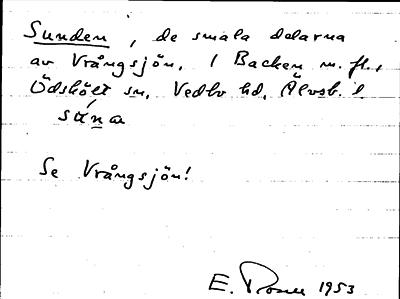 Sunden, de smala delarna
av Vrångsjön, i Backen m. fl.,
Ödskölt sn, Vedbo hd, Älvsb. l.
súna
Se Vrångsjön!
E. 1953